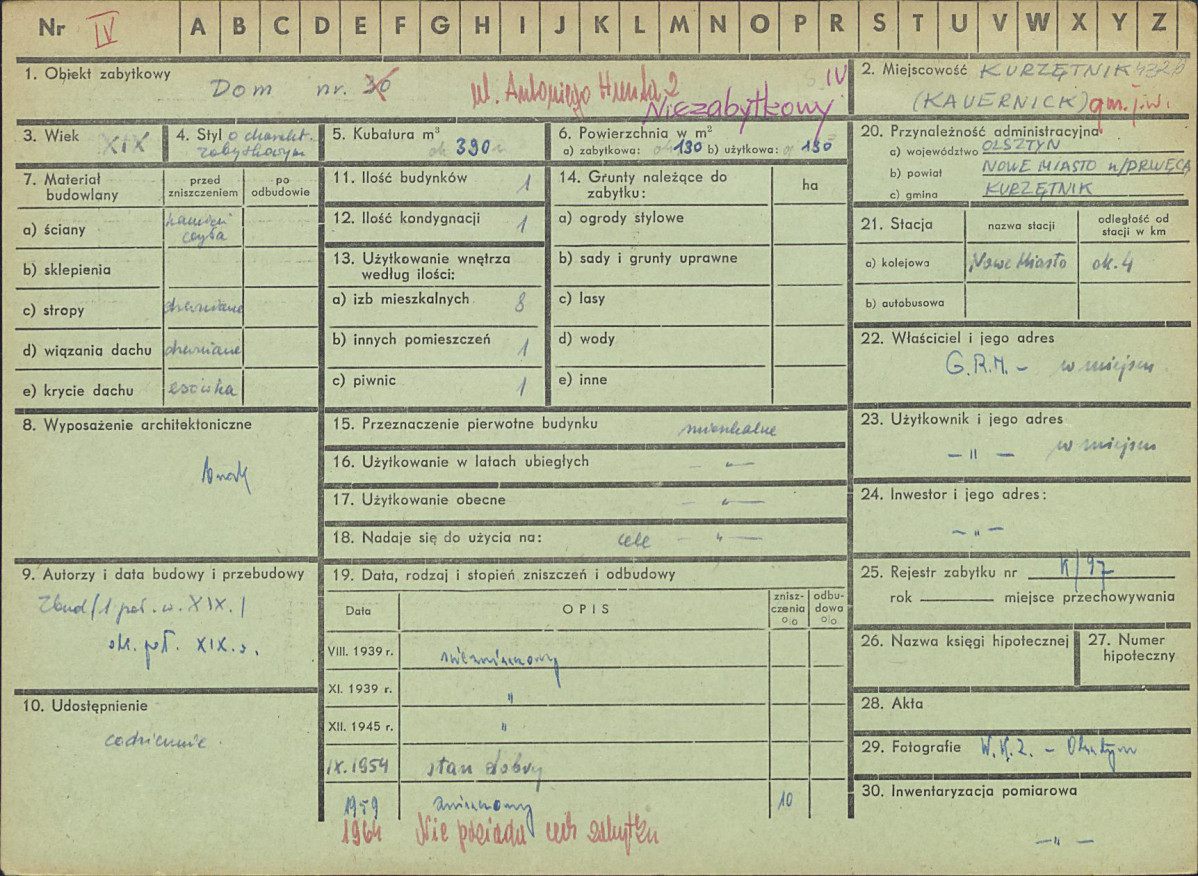 Nr IV A B C D E F G H I J K L M N O P R S T U V W X Y Z
1. Obiekt zabytkowy Dom nr. 30 ul. Antoniego Hunta 2 IV
Niezabytkowy
2. Miejscowość KURZĘTNIK
(KAUERNICK) gm. j.w.
3. Wiek XIX
4. Styl o charakt.
zabytkowym
5. Kubatura m³
ok 390
6. Powierzchnia w m²
a) zabytkowa: ok 130 b) użytkowa: 130
20. Przynależność administracyjna
a) województwo OLSZTYN
b) powiat NOWE MIASTO n/DRWĘCĄ
c) gmina KURZĘTNIK
7. Materiał budowlany
przed zniszczeniem
po odbudowie
a) ściany kamień
cegła
b) sklepienia
c) stropy drewniane
d) wiązania dachu drewniane
e) krycie dachu esówka
11. Ilość budynków 1
12. Ilość kondygnacji 1
13. Użytkowanie wnętrza
według ilości:
a) izb mieszkalnych 8
b) innych pomieszczeń 1
c) piwnic 1
14. Grunty należące do
zabytku:
ha
a) ogrody stylowe
b) sady i grunty uprawne
c) lasy
d) wody
e) inne
21. Stacja
nazwa stacji
odległość od
stacji w km
a) kolejowa Nowe Miasto ok. 4
b) autobusowa
22. Właściciel i jego adres
G.R.N. - w miejscu
8. Wyposażenie architektoniczne
brak
15. Przeznaczenie pierwotne budynku mieszkalne
16. Użytkowanie w latach ubiegłych — „ —
17. Użytkowanie obecne — „ —
18. Nadaje się do użycia na: cele — „ —
23. Użytkownik i jego adres
— „ — w miejscu
24. Inwestor i jego adres:
— „ —
9. Autorzy i data budowy i przebudowy
Zbud /1 poł. w. XIX./
ok. poł. XIX. w.
19. Data, rodzaj i stopień zniszczeń i odbudowy
Data
OPIS
znisz-
czenia
%
odbu-
dowa
%
VIII. 1939 r. niezniszczony
XI. 1939 r. „
XII. 1945 r. „
IX. 1954 stan dobry
1959 zniszczony 10
1964 Nie posiada cech zabytku
25. Rejestr zabytku nr K/97
rok miejsce przechowywania
26. Nazwa księgi hipotecznej
27. Numer
hipoteczny
10. Udostępnienie
codziennie
28. Akta
29. Fotografie W.K.Z. - Olsztyn
30. Inwentaryzacja pomiarowa
— „ —